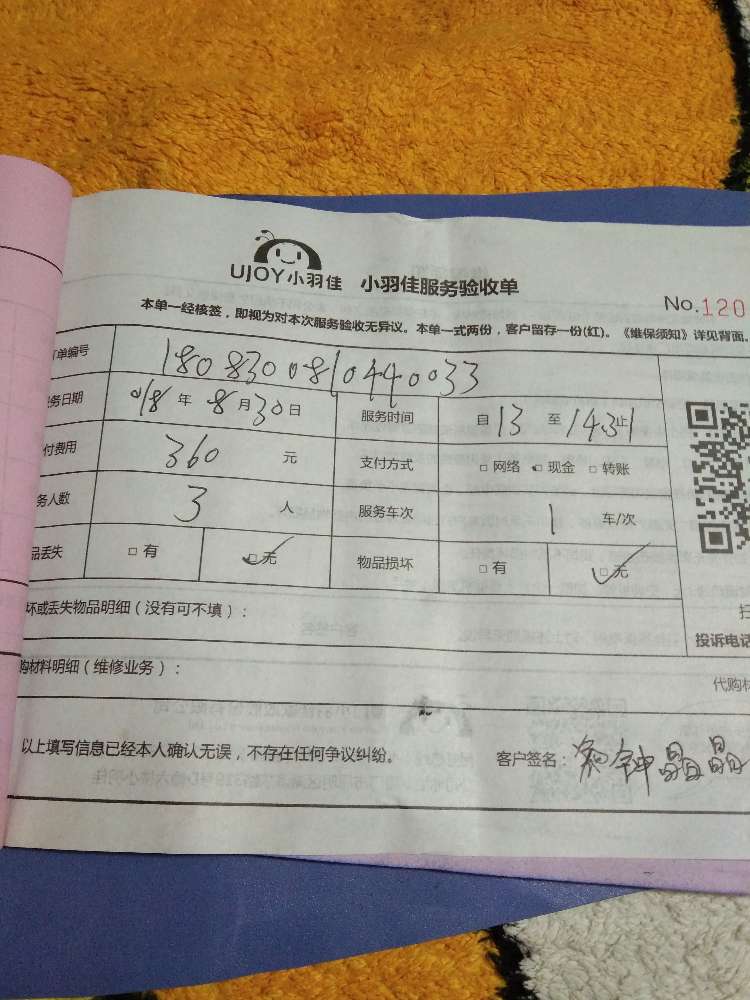 UJOY小羽佳 小羽佳服务验收单
No.120
本单一经核签，即视为对本次服务验收无异议。本单一式两份，客户留存一份(红)。《维保须知》详见背面。
单编号 1808300810440033
务日期 018年 8月30日 服务时间 自13至1431止
付费用 360 元 支付方式 □网络 □现金 □转账
务人数 3 人 服务车次 1 车/次
品丢失 □有 □无 物品损坏 □有 □无
坏或丢失物品明细（没有可不填）：
投诉电话
购材料明细（维修业务）：
代购材
以上填写信息已经本人确认无误，不存在任何争议纠纷。 客户签名： 钟晶晶